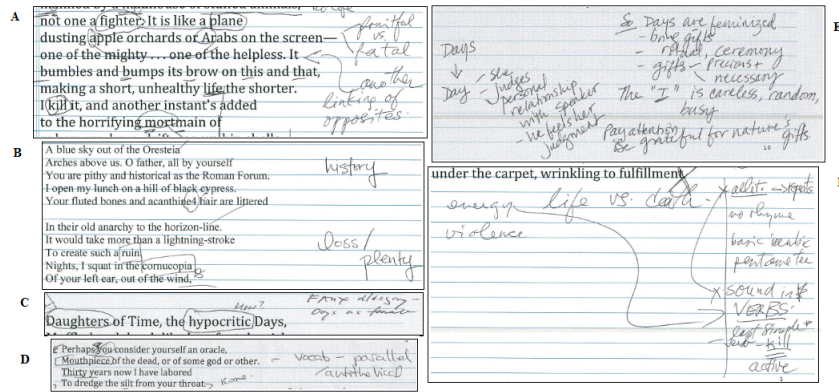 A
not one a fighter. It is like a plane
dusting apple orchards or Arabs on the screen—
one of the mighty . . . one of the helpless. It
bumbles and bumps its brow on this and that,
making a short, unhealthy life the shorter.
I kill it, and another instant's added
to the horrifying mortmain of
fruitful
vs.
fatal
another
linking of
opposites.
B
A blue sky out of the Oresteia
Arches above us. O father, all by yourself
You are pithy and historical as the Roman Forum.
I open my lunch on a hill of black cypress.
Your fluted bones and acanthine4 hair are littered
In their old anarchy to the horizon-line.
It would take more than a lightning-stroke
To create such a ruin.
Nights, I squat in the cornucopia
Of your left ear, out of the wind,
history
loss/
plenty
C
Daughters of Time, the hypocritic Days,
D
Perhaps you consider yourself an oracle,
Mouthpiece of the dead, or of some god or other.
Thirty years now I have labored
To dredge the silt from your throat.
vocab – parallel
/antithetical
Days
Day
she
judges
personal
relationship
with speaker
he feels her
judgment
So Days are feminized
- bring gifts
- ritual, ceremony
- gifts - precious +
necessary
The "I" is careless, random,
busy
Pay attention
Be grateful for nature's
gifts
under the carpet, wrinkling to fulfillment.
energy life vs. death.
violence
allit. → repeats
no rhyme
basic iambic
pentameter
sound in
VERBS.
kill
active